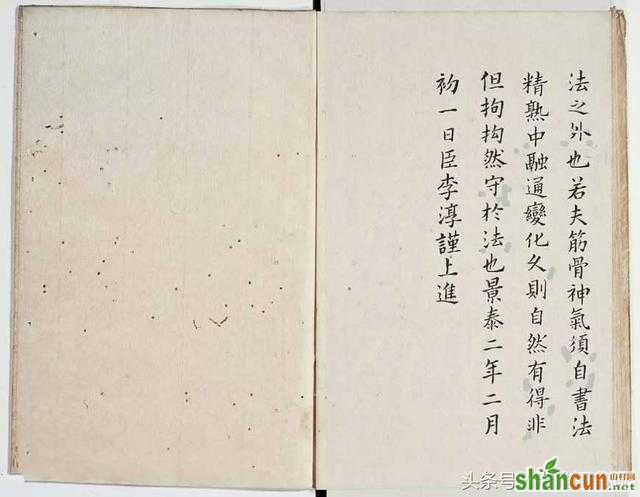 法之外也若夫筋骨神氣須自書法
精熟中融通變化久則自然有得非
但拘拘然守於法也景泰二年二月
初一日臣李淳謹上進
头条号
shancun
.net